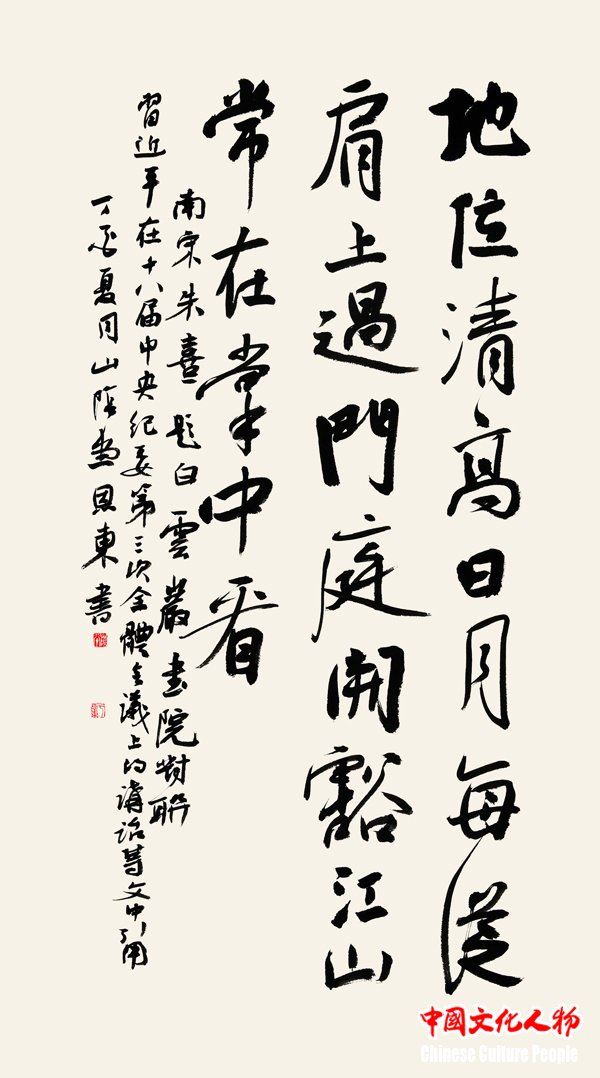 地位清高日月每從
肩上過門庭開豁江山
常在掌中看
南宋朱熹題白雲巖書院對聯
習近平在十八届中央紀委第三次全體会議上的講話等文中引用
丁酉夏月山陰東書
中國文化人物
Chinese Culture People